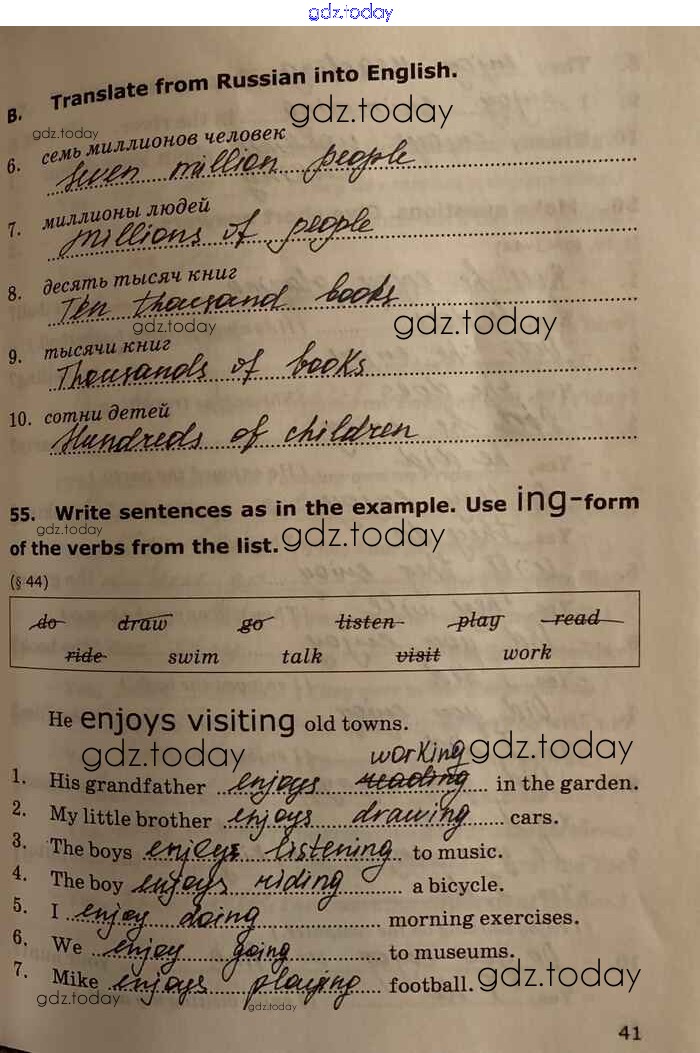 gdz.today
B. Translate from Russian into English.
gdz.today
gdz.today
6. семь миллионов человек
Seven million people
7. миллионы людей
millions of people
8. десять тысяч книг
Ten thousand books
gdz.today
gdz.today
9. тысячи книг
Thousands of books
10. сотни детей
Hundreds of children
55. Write sentences as in the example. Use ing-form
gdz.today
of the verbs from the list.
gdz.today
(§ 44)
do draw go listen play read
ride swim talk visit work
He enjoys visiting old towns.
gdz.today
gdz.today
working
1. His grandfather enjoys reading in the garden.
2. My little brother enjoys drawing cars.
3. The boys enjoys listening to music.
4. The boy enjoys riding a bicycle.
5. I enjoy doing morning exercises.
6. We enjoy going to museums.
7. Mike enjoys playing football.
gdz.today
gdz.today
gdz.today
41